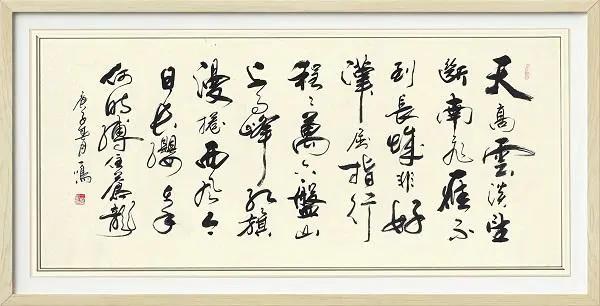 天高雲淡望
斷南飛雁不
到長城非好
漢屈指行
程二萬六盤山
上高峰紅旗
漫捲西風今
日長纓在手
何時縛住蒼龍
庚子